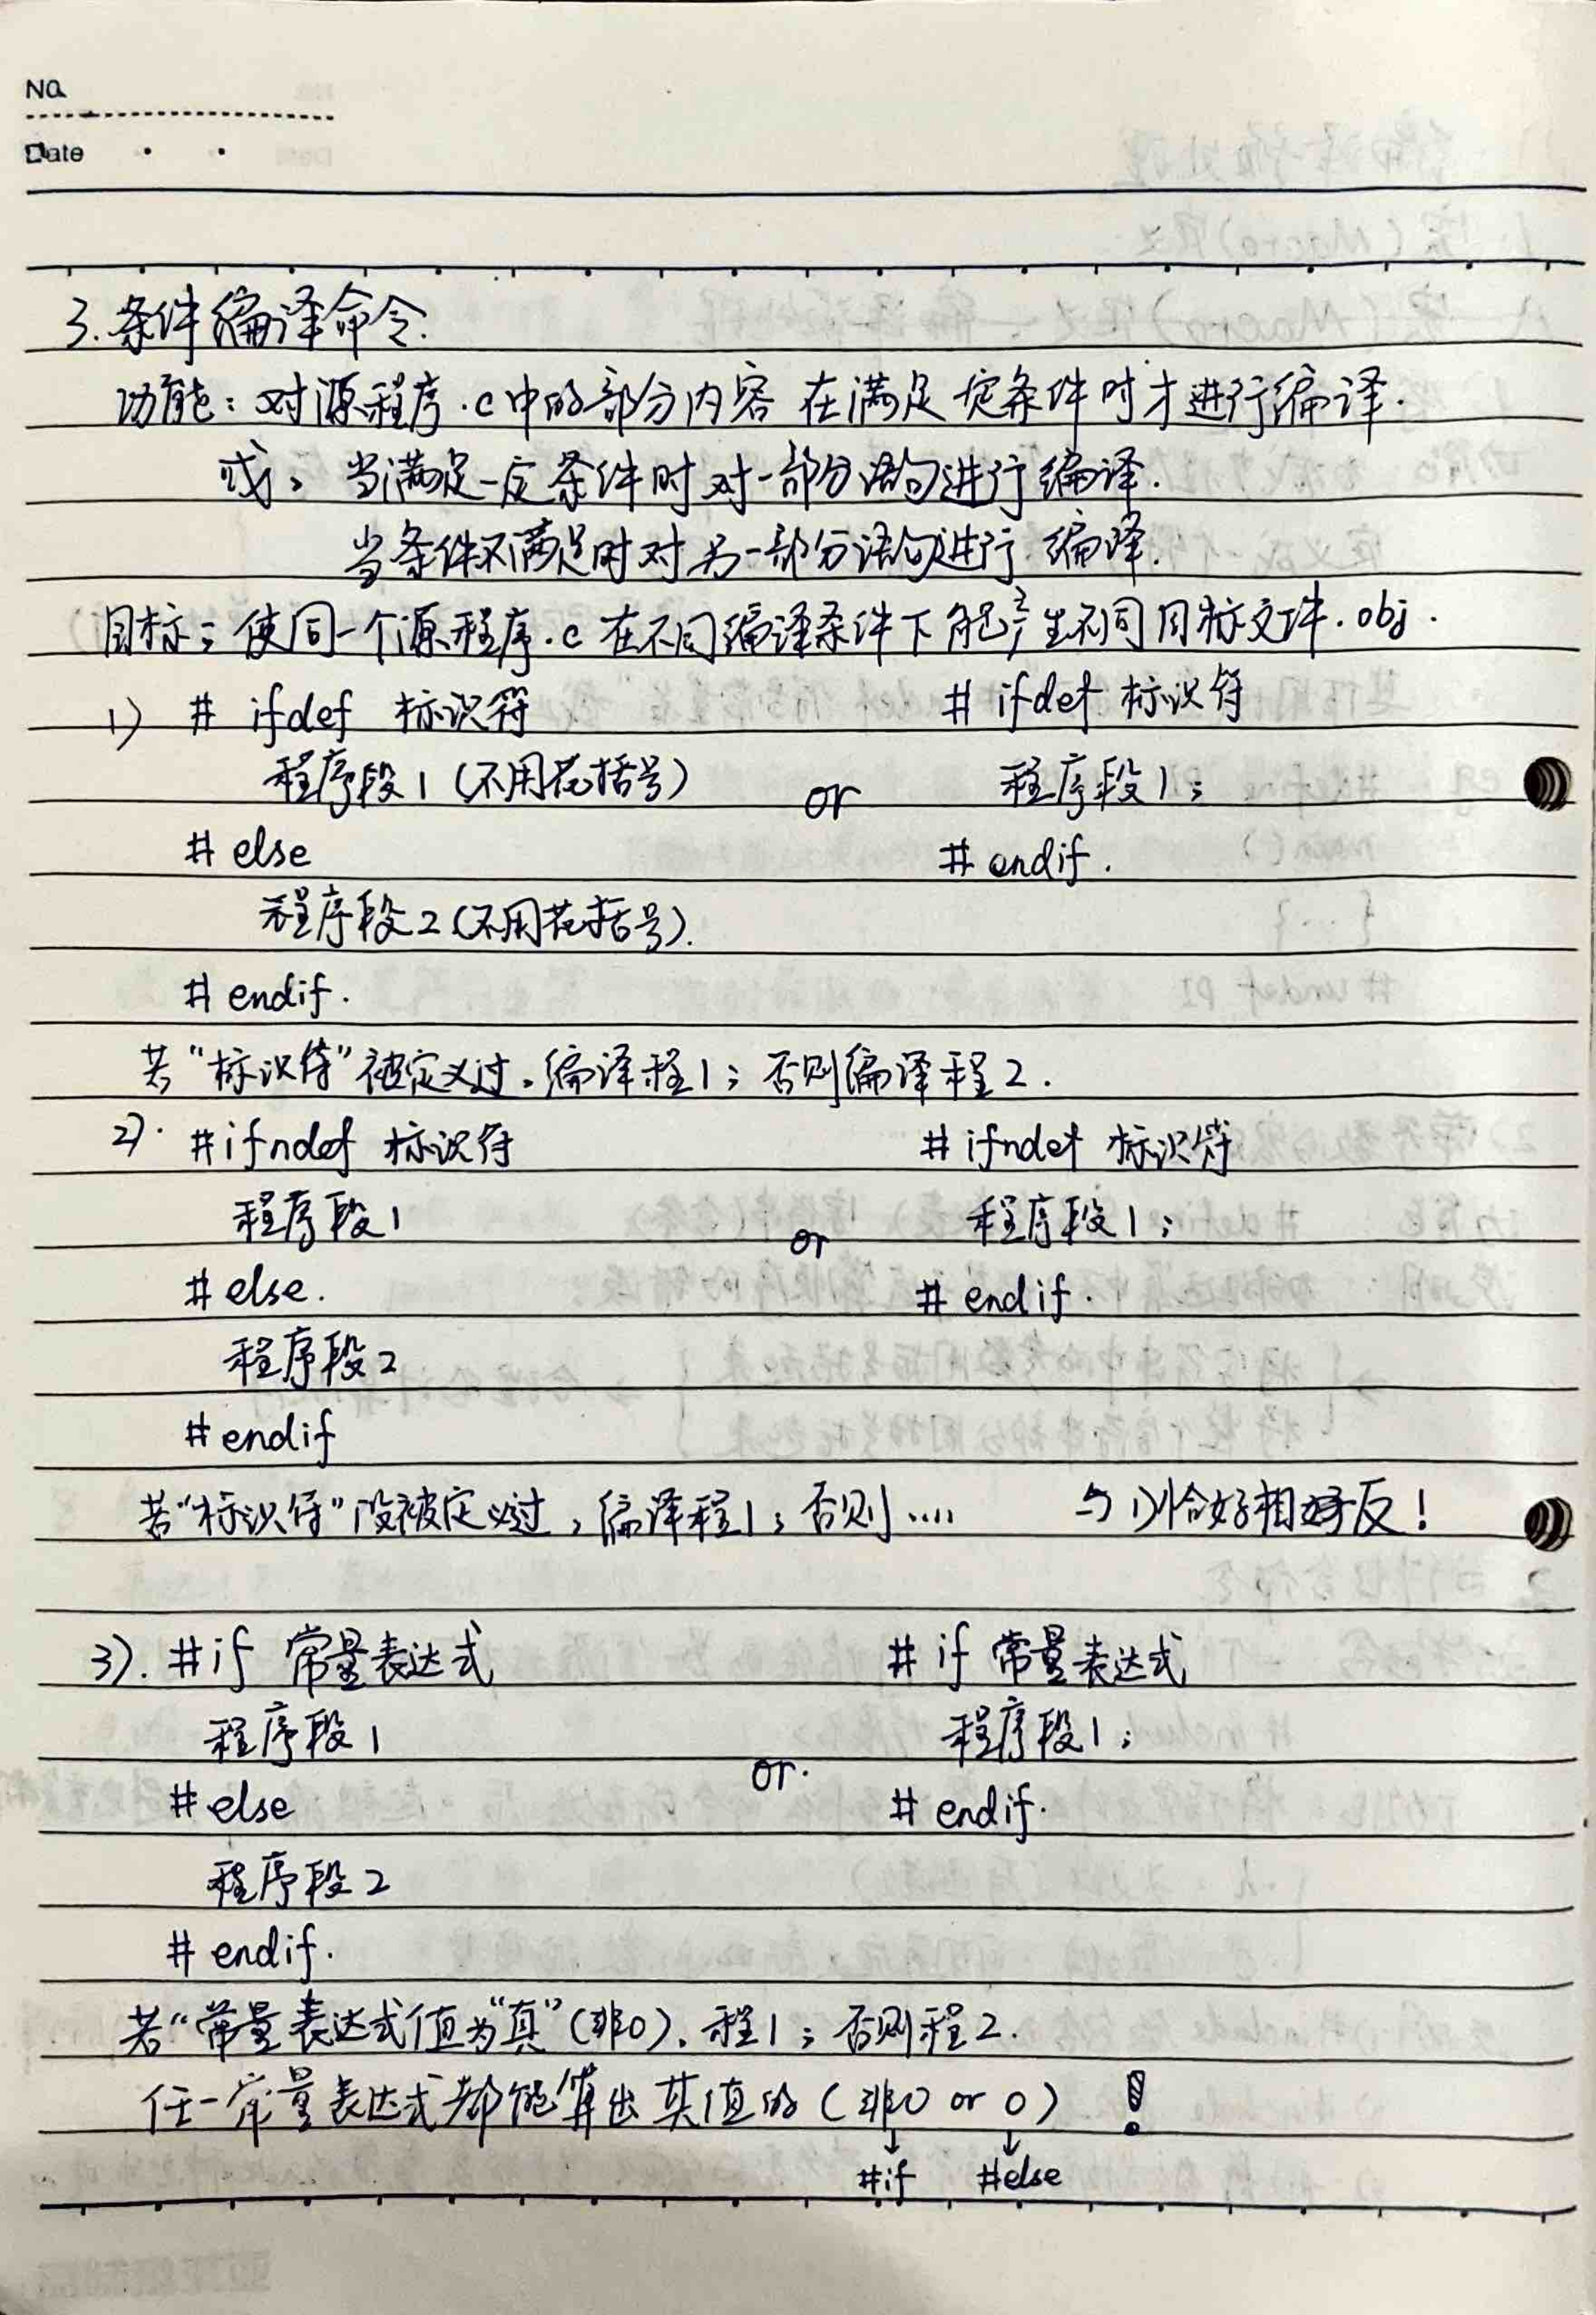 No.
Date
3.条件编译命令.
功能:对源程序.c中的部分内容 在满足一定条件时才进行编译.
或:当满足一定条件时对一部分语句进行编译.
当条件不满足时对另一部分语句进行编译.
目标:使同一个源程序.c在不同编译条件下能产生不同目标文件.obj.
1) # ifdef 标识符
程序段1(不用花括号)
# else
程序段2(不用花括号).
# endif.
or
# ifdef 标识符
程序段1;
# endif.
若"标识符"被定义过,编译程1;否则编译程2.
2). #ifndef 标识符
程序段1
# else.
程序段2
# endif
or
# ifndef 标识符
程序段1;
# endif.
若"标识符"没被定义过,编译程1;否则.... 与1)恰好相反!
3). #if 常量表达式
程序段1
# else
程序段2
# endif.
or.
# if 常量表达式
程序段1;
# endif.
若"常量表达式值为"真"(非0),程1;否则程2.
任一常量表达式都能算出其值的(非0 or 0) !
↓ ↓
#if #else